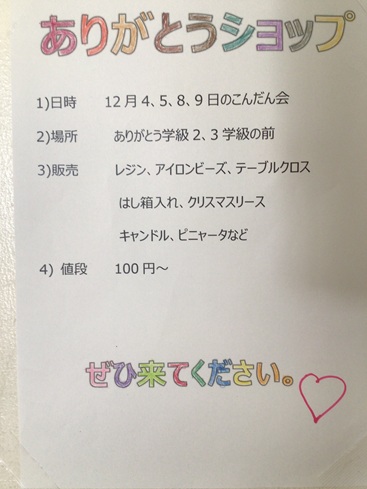 ありがとうショップ
1)日時 12月4、5、8、9日のこんだん会
2)場所 ありがとう学級2、3学級の前
3)販売 レジン、アイロンビーズ、テーブルクロス
はし箱入れ、クリスマスリース
キャンドル、ピニャータなど
4) 値段 100円～
ぜひ来てください。